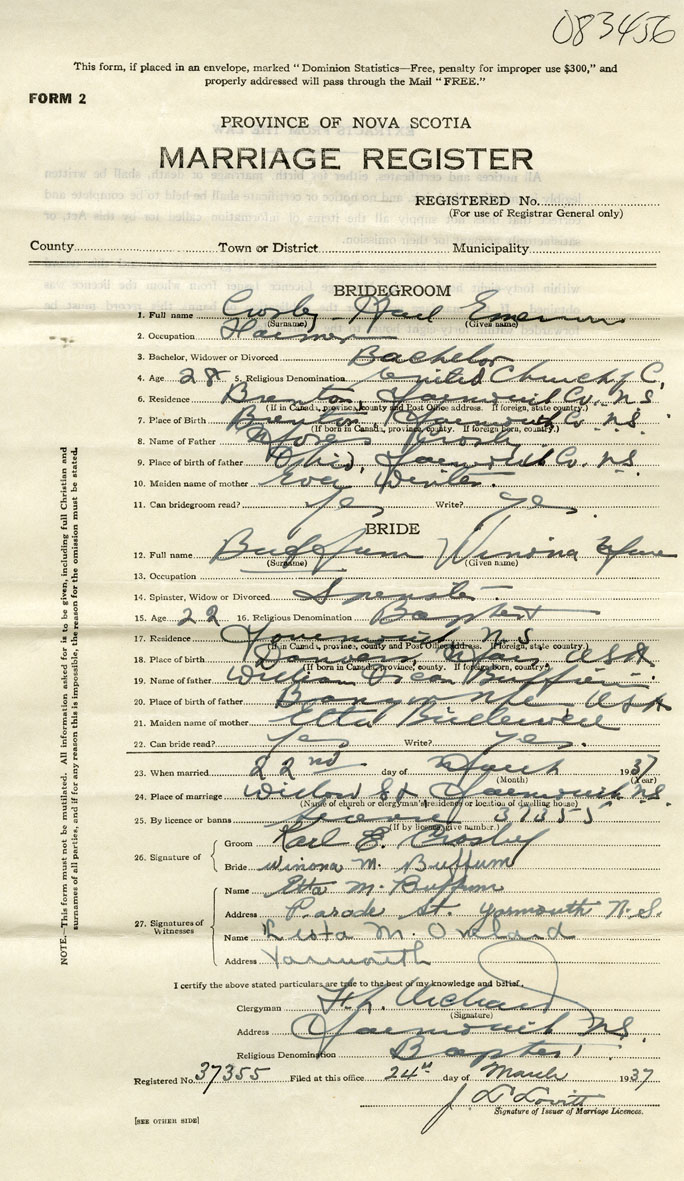 083456
This form, if placed in an envelope, marked "Dominion Statistics—Free, penalty for improper use $300," and
properly addressed will pass through the Mail "FREE."
FORM 2
PROVINCE OF NOVA SCOTIA
MARRIAGE REGISTER
REGISTERED No.
(For use of Registrar General only)
County Town or District Municipality
BRIDEGROOM
1. Full name Crosby Karl Emerson
(Surname) (Given name)
2. Occupation Farmer
3. Bachelor, Widower or Divorced Bachelor
4. Age 28 5. Religious Denomination United Church of C.
6. Residence Brenton, Yarmouth Co. N.S.
(If in Canada, province, county and Post Office address. If foreign, state country.)
7. Place of Birth Brenton Yarmouth Co. N.S.
(If born in Canada, province, county. If foreign born, country.)
8. Name of Father Crosby
9. Place of birth of father Ohio, Yarmouth Co. N.S.
10. Maiden name of mother
11. Can bridegroom read? Yes Write? Yes
BRIDE
12. Full name Buffum Winona
(Surname) (Given name)
13. Occupation
14. Spinster, Widow or Divorced Spinster
15. Age 22 16. Religious Denomination Baptist
17. Residence Yarmouth N.S.
(If in Canada, province, county and Post Office address. If foreign, state country.)
18. Place of birth Danvers, Mass. USA
(If born in Canada, province, county. If foreign born, country.)
19. Name of father William Buffum
20. Place of birth of father USA
21. Maiden name of mother Etta
22. Can bride read? Yes Write? Yes.
23. When married 22nd day of March 1937
(Month) (Year)
24. Place of marriage Willow St Yarmouth N.S.
(Name of church or clergyman's residence or location of dwelling house)
25. By licence or banns Licence 37355
(If by license, give number.)
26. Signature of
Groom Karl E. Crosby
Bride Winona M. Buffum
27. Signatures of
Witnesses
Name Etta M. Buffum
Address Parade St. Yarmouth N.S.
Name M.
Address Yarmouth
I certify the above stated particulars are true to the best of my knowledge and belief.
Clergyman
(Signature)
Address Yarmouth N.S.
Religious Denomination Baptist
Registered No. 37355 Filed at this office 24th day of March 1937
J L Lovitt
Signature of Issuer of Marriage Licences.
[SEE OTHER SIDE]
NOTE.—This form must not be mutilated. All information asked for is to be given, including full Christian and
surnames of all parties, and if for any reason this is impossible, the reason for the omission must be stated.